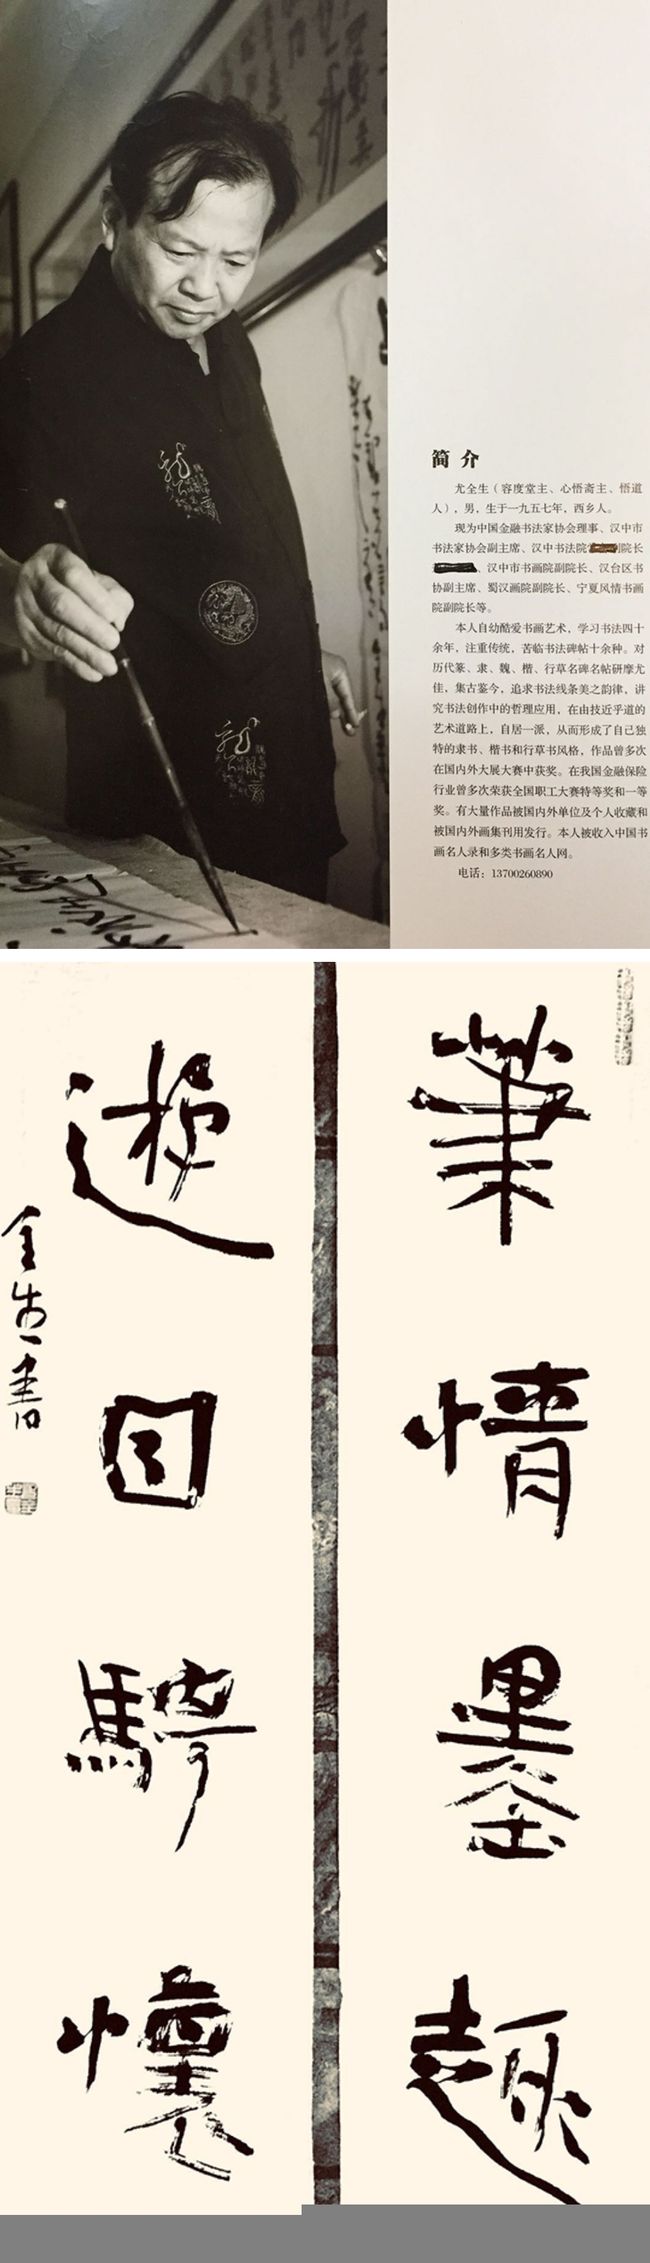 简 介
尤全生（容度堂主、心悟斋主、悟道
人），男，生于一九五七年，西乡人。
现为中国金融书法家协会理事、汉中市
书法家协会副主席、汉中书法院院长
、汉中市书画院副院长、汉台区书
协副主席、蜀汉画院副院长、宁夏风情书画
院副院长等。
本人自幼酷爱书画艺术，学习书法四十
余年，注重传统，苦临书法碑帖十余种。对
历代篆、隶、魏、楷、行草名碑名帖研摩尤
佳，集古鉴今，追求书法线条美之韵律，讲
究书法创作中的哲理应用，在由技近乎道的
艺术道路上，自居一派，从而形成了自己独
特的隶书、楷书和行草书风格，作品曾多次
在国内外大展大赛中获奖。在我国金融保险
行业曾多次荣获全国职工大赛特等奖和一等
奖。有大量作品被国内外单位及个人收藏和
被国内外画集刊用发行。本人被收入中国书
画名人录和多类书画名人网。
电话：13700260890
筆情墨趣
遊目騁懷
全生書